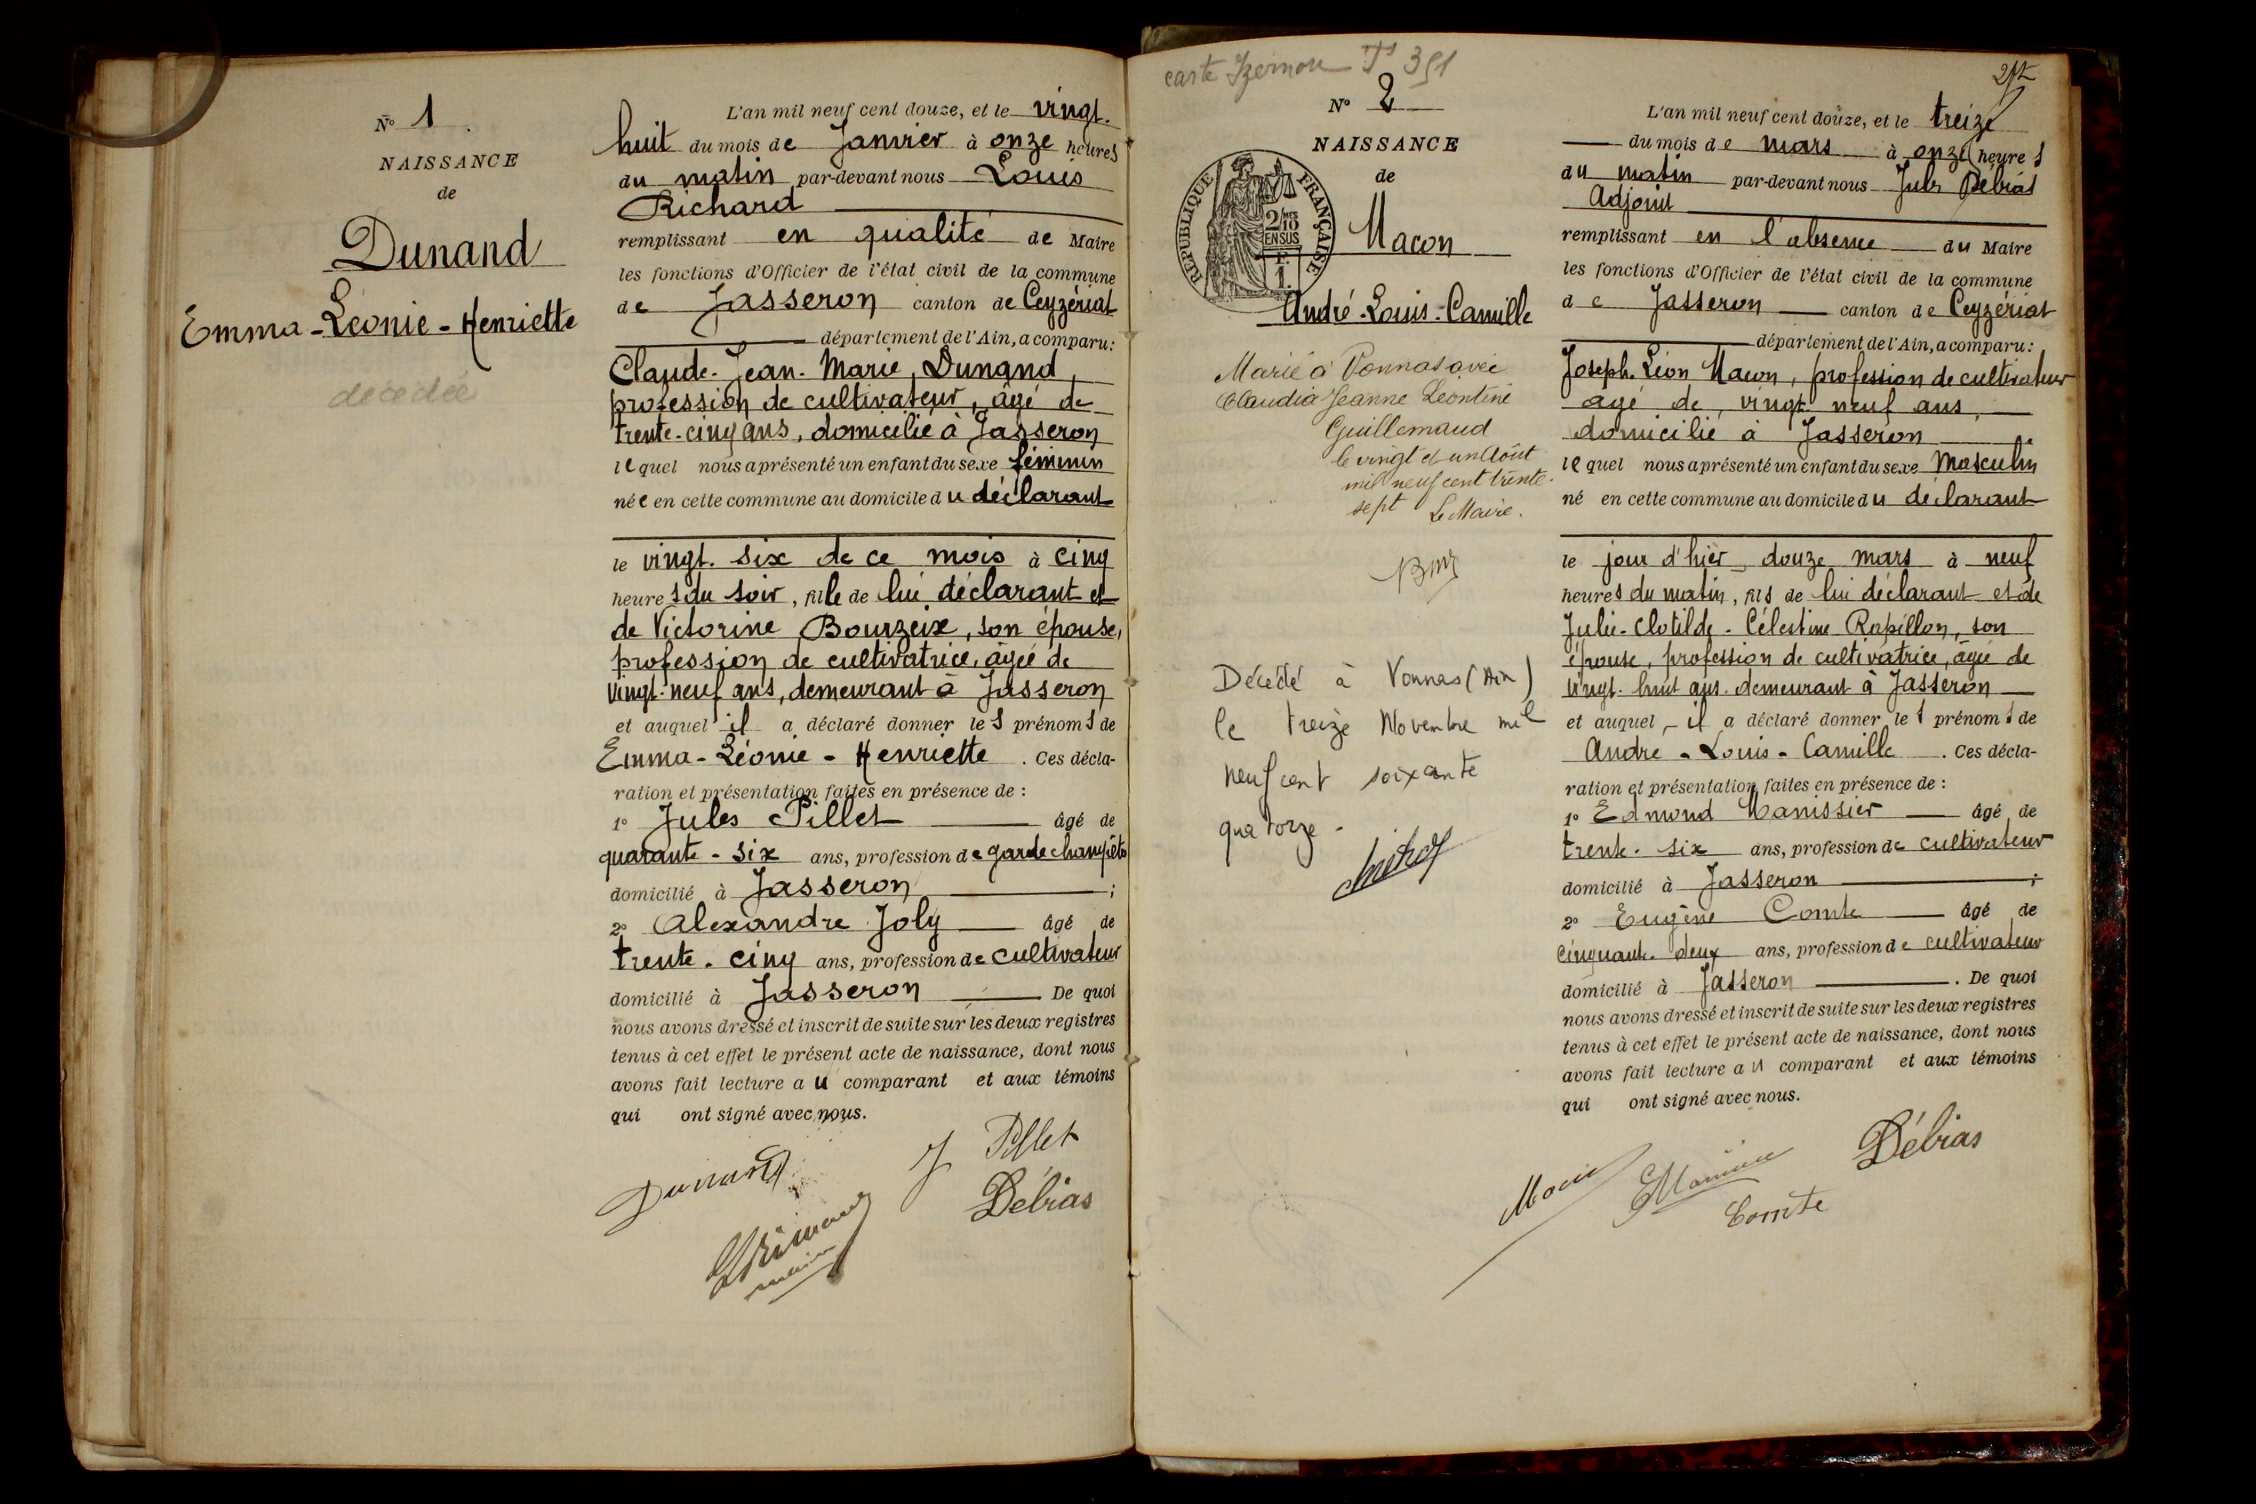 N° 1
NAISSANCE
de
Dunand
Emma-Léonie-Henriette
décédée
L'an mil neuf cent douze, et le vingt-
huit du mois de Janvier à onze heures
du matin par-devant nous Louis
Richard
remplissant en qualité de Maire
les fonctions d'Officier de l'état civil de la commune
de Jasseron canton de Ceyzériat
département de l'Ain, a comparu:
Claude-Jean-Marie Dunand,
profession de cultivateur, âgé de
trente-cinq ans, domicilié à Jasseron
lequel nous a présenté un enfant du sexe féminin
née en cette commune au domicile du déclarant
le vingt-six de ce mois à cinq
heures du soir, fille de lui déclarant et
de Victorine Bourzeix, son épouse,
profession de cultivatrice, âgée de
vingt-neuf ans, demeurant à Jasseron
et auquel il a déclaré donner les prénoms de
Emma-Léonie-Henriette. Ces décla-
ration et présentation faites en présence de :
1° Jules Pillet âgé de
quarante-six ans, profession de garde champêtre
domicilié à Jasseron ;
2° Alexandre Joly âgé de
trente-cinq ans, profession de cultivateur
domicilié à Jasseron De quoi
nous avons dressé et inscrit de suite sur les deux registres
tenus à cet effet le présent acte de naissance, dont nous
avons fait lecture au comparant et aux témoins
qui ont signé avec nous.
Dunand
J Pillet
Débias
carte Izernore Ts 391
N° 2
NAISSANCE
de
RÉPUBLIQUE FRANÇAISE
2/10 EN SUS
1
Macon
André-Louis-Camille
Marié à Vonnas avec
Claudia Jeanne Léontine
Guillemaud
le vingt et un Août
mil neuf cent trente-
sept Le Maire.
Décédé à Vonnas (Ain)
le treize Novembre mil
neuf cent soixante
quatorze.
L'an mil neuf cent douze, et le treize
du mois de mars à onze heures
du matin par-devant nous Jules Débias
Adjoint
remplissant en l'absence du Maire
les fonctions d'Officier de l'état civil de la commune
de Jasseron canton de Ceyzériat
département de l'Ain, a comparu:
Joseph-Léon Macon, profession de cultivateur
âgé de, vingt neuf ans,
domicilié à Jasseron
lequel nous a présenté un enfant du sexe Masculin
né en cette commune au domicile du déclarant
le jour d'hier douze mars à neuf
heures du matin, fils de lui déclarant et de
Julie-Clotilde-Célestine Rapillon, son
épouse, profession de cultivatrice, âgée de
vingt-huit ans demeurant à Jasseron
et auquel il a déclaré donner les prénoms de
André-Louis-Camille. Ces décla-
ration et présentation faites en présence de :
1° Edmond Manissier âgé de
trente-six ans, profession de cultivateur
domicilié à Jasseron ;
2° Eugène Comte âgé de
cinquante-deux ans, profession de cultivateur
domicilié à Jasseron. De quoi
nous avons dressé et inscrit de suite sur les deux registres
tenus à cet effet le présent acte de naissance, dont nous
avons fait lecture au comparant et aux témoins
qui ont signé avec nous.
Débias
Comte